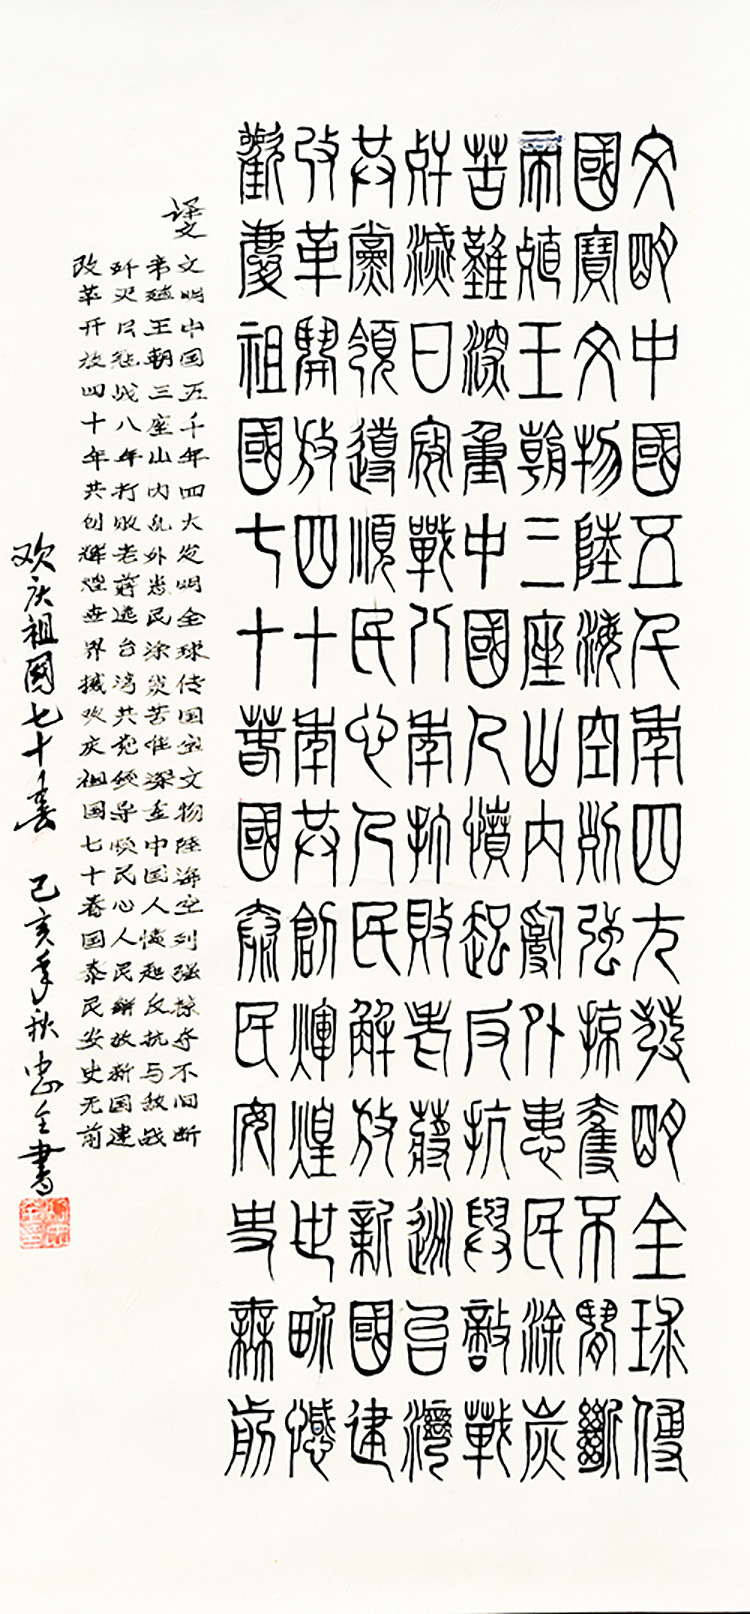 文明中國五千年四大發明全球傳
國寶文物陸海空列強掠奪不間斷
帝殖王朝三座山內亂外患民涂炭
苦難深重中國人憤起反抗與敵戰
歼滅日寇戰八年打敗老蔣逃台灣
共黨領導順民心人民解放新國建
改革開放四十年共創輝煌世界撼
歡慶祖國七十春國泰民安史無前
译文
文明中国五千年四大发明全球传国宝文物陸海空列强掠夺不间断
帝殖王朝三座山内乱外患民涂炭苦难深重中国人愤起反抗与敌战
歼灭日寇战八年打败老蒋逃台湾共党领导顺民心人民解放新国建
改革开放四十年共创辉煌世界撼欢庆祖国七十春国泰民安史无前
欢庆祖國七十春 己亥年秋忠全書